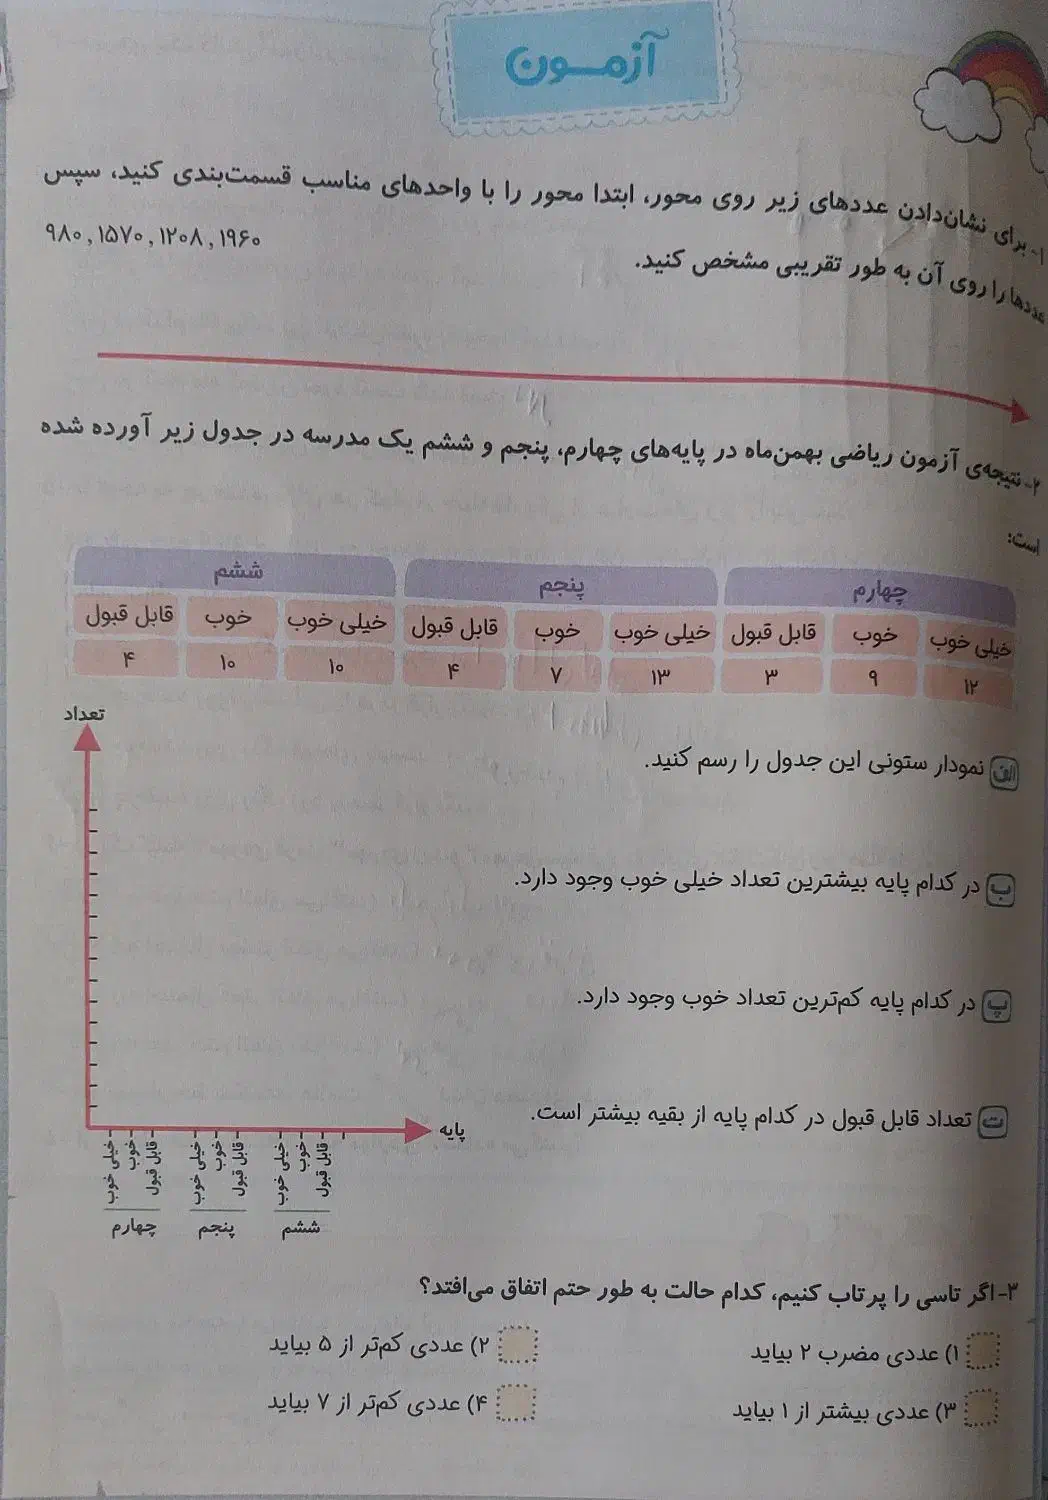 آزمــون
۱- برای نشان‌دادن عددهای زیر روی محور، ابتدا محور را با واحدهای مناسب قسمت‌بندی کنید، سپس
عددها را روی آن به طور تقریبی مشخص کنید.
۹۸۰ , ۱۵۷۰ , ۱۲۰۸ , ۱۹۶۰
۲- نتیجه‌ی آزمون ریاضی بهمن‌ماه در پایه‌های چهارم، پنجم و ششم یک مدرسه در جدول زیر آورده شده
است:
چهارم پنجم ششم
خیلی خوب خوب قابل قبول خیلی خوب خوب قابل قبول خیلی خوب خوب قابل قبول
۱۲ ۹ ۳ ۱۳ ۷ ۴ ۱۰ ۱۰ ۴
الف نمودار ستونی این جدول را رسم کنید.
ب در کدام پایه بیشترین تعداد خیلی خوب وجود دارد.
پ در کدام پایه کم‌ترین تعداد خوب وجود دارد.
ت تعداد قابل قبول در کدام پایه از بقیه بیشتر است.
تعداد
پایه
خیلی خوب خوب قابل قبول خیلی خوب خوب قابل قبول خیلی خوب خوب قابل قبول
چهارم پنجم ششم
۳- اگر تاسی را پرتاب کنیم، کدام حالت به طور حتم اتفاق می‌افتد؟
۱) عددی مضرب ۲ بیاید
۲) عددی کم‌تر از ۵ بیاید
۳) عددی بیشتر از ۱ بیاید
۴) عددی کم‌تر از ۷ بیاید